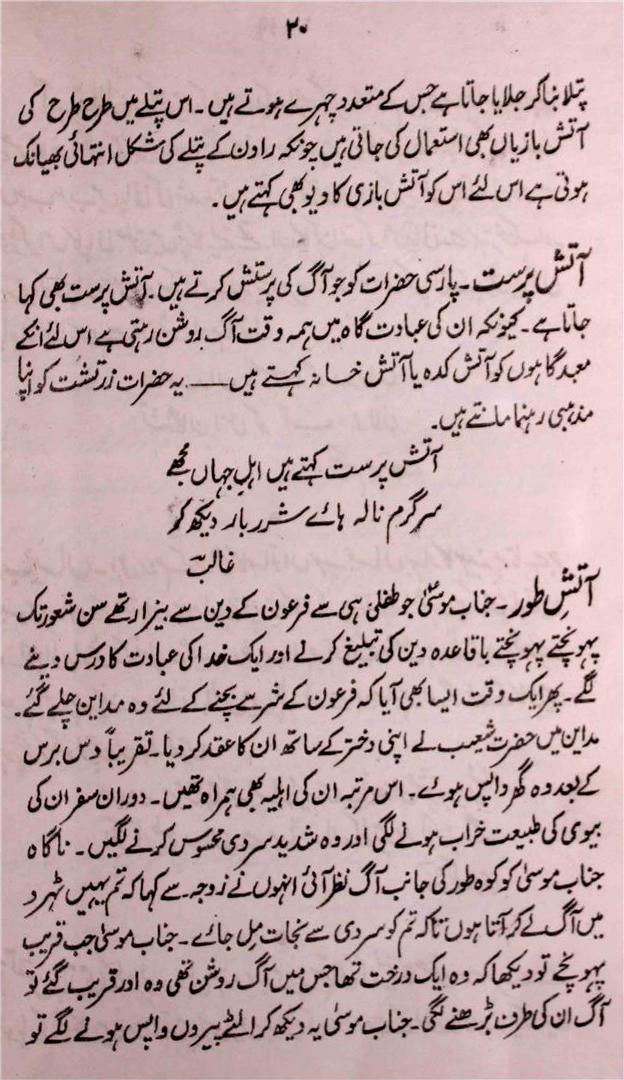 ۲۰
پتلا بنا کر جلایا جاتا ہے جس کے متعدد چہرے ہوتے ہیں۔ اس پتلے میں طرح طرح کی
آتش بازیاں بھی استعمال کی جاتی ہیں چونکہ راون کے پتلے کی شکل انتہائی بھیانک
ہوتی ہے اس لئے اس کو آتش بازی کا دیو بھی کہتے ہیں۔
آتش پرست۔ پارسی حضرات کو جو آگ کی پرستش کرتے ہیں۔ آتش پرست بھی کہا
جاتا ہے۔ کیونکہ ان کی عبادت گاہ میں ہمہ وقت آگ روشن رہتی ہے اس لئے انکے
معبد گاہوں کو آتش کدہ یا آتش خانہ کہتے ہیں ــــ یہ حضرات زرتشت کو اپنا
مذہبی رہنما مانتے ہیں۔
آتش پرست کہتے ہیں اہلِ جہاں مجھے
سرگرم نالہ ہائے شرر بار دیکھ کر
غالبؔ
آتشِ طور۔ جناب موسیٰؑ جو طفلی ہی سے فرعون کے دین سے بیزار تھے سن شعور تک
پہونچتے پہونچتے باقاعدہ دین کی تبلیغ کرنے اور ایک خدا کی عبادت کا درس دینے
لگے۔ پھر ایک وقت ایسا بھی آیا کہ فرعون کے شر سے بچنے کے لئے وہ مداین چلے گئے۔
مداین میں حضرت شعیب نے اپنی دختر کے ساتھ ان کا عقد کر دیا۔ تقریباً دس برس
کے بعد وہ گھر واپس ہوئے۔ اس مرتبہ ان کی اہلیہ بھی ہمراہ تھیں۔ دوران سفر ان کی
بیوی کی طبیعت خراب ہونے لگی اور وہ شدید سردی محسوس کرنے لگیں۔ ناگاہ
جناب موسیٰ کو کوہ طور کی جانب آگ نظر آئی انہوں نے زوجہ سے کہا کہ تم یہیں ٹہرو
میں آگ لے کر آتا ہوں تاکہ تم کو سردی سے نجات مل جائے۔ جناب موسیٰ جب قریب
پہونچے تو دیکھا کہ وہ ایک درخت تھا جس میں آگ روشن تھی وہ اور قریب گئے تو
آگ ان کی طرف بڑھنے لگی۔ جناب موسیٰ یہ دیکھ کر الٹے پیروں واپس ہونے لگے تو